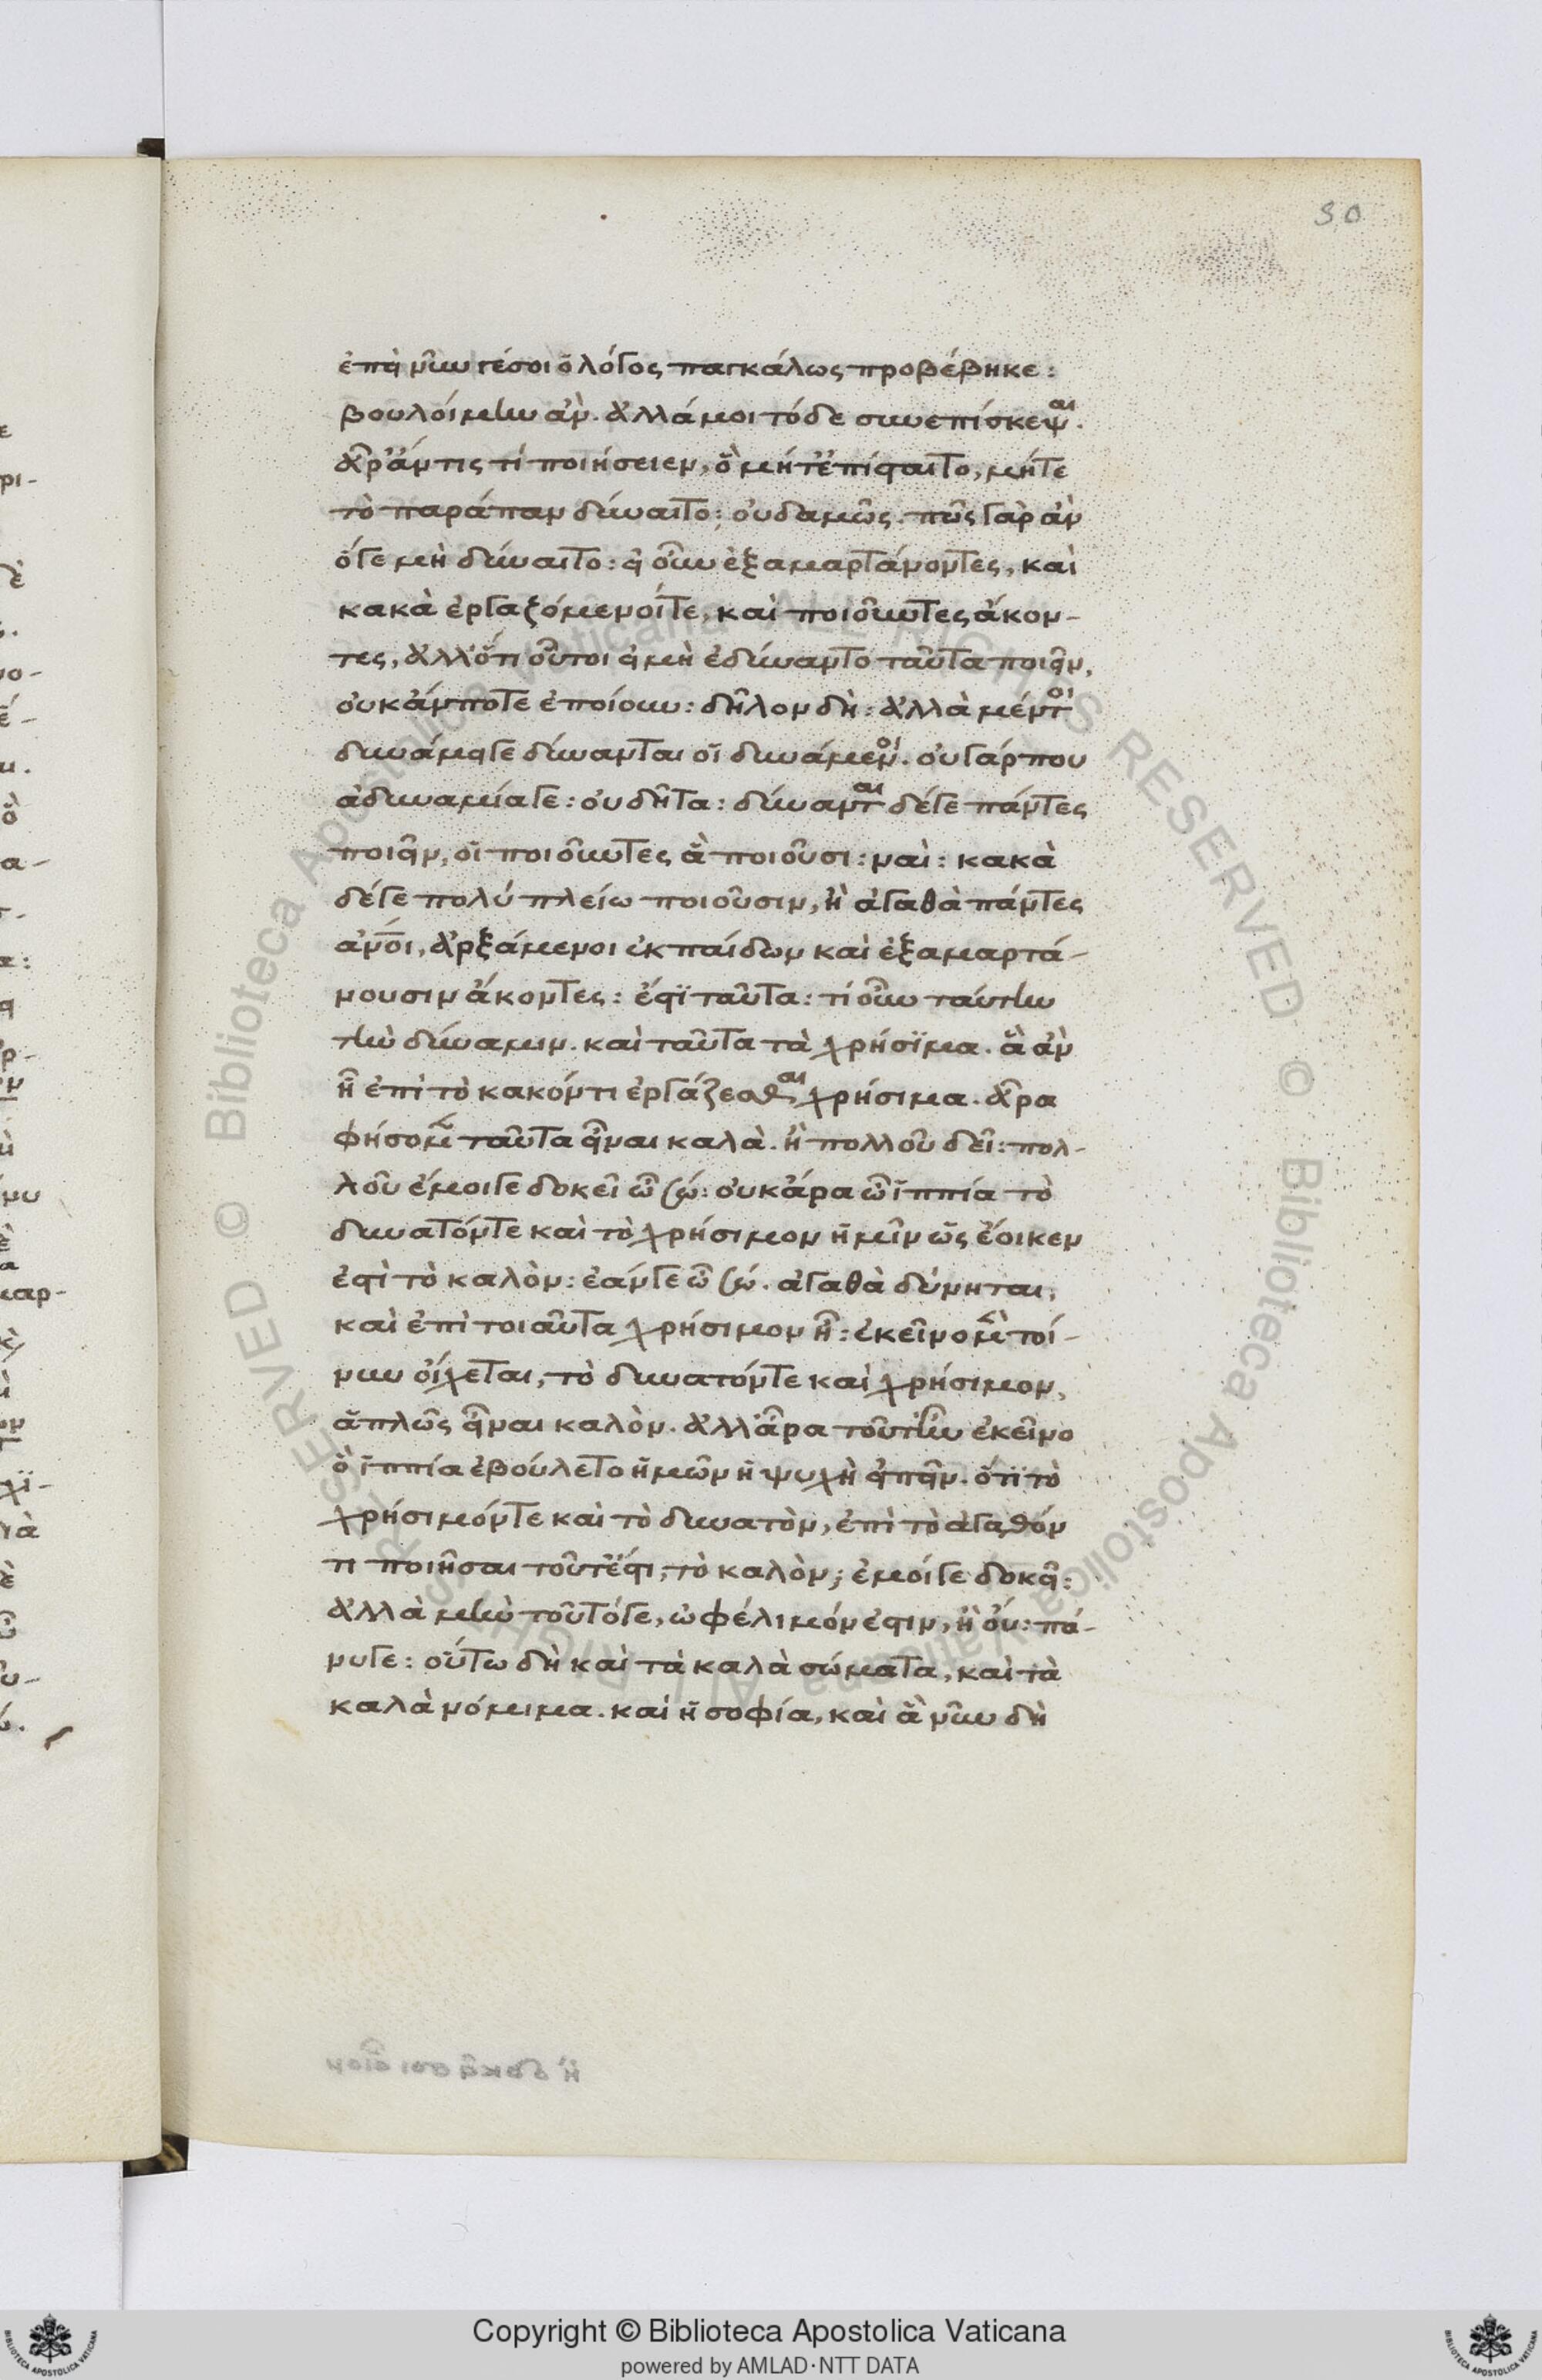 30
ἐπεὶ νῦν γέσοι ὁ λόγος παγκάλως προβέβηκε:
βουλοίμην ἀν. ἀλλά μοι τόδε συνεπίσκεψαι.
ἆρ' ἄν τις τί ποιήσειεν, ὃ μήτ' ἐπίσταιτο, μήτε
τὸ παράπαν δύναιτο; οὐδαμῶς. πῶς γὰρ ἀν
ὅγε μὴ δύναιτο: οἱ οὖν ἐξαμαρτάνοντες, καὶ
κακὰ ἐργαζόμενοίτε, καὶ ποιοῦντες ἄκον-
τες, ἀλλ' ὅτι οὗτοι εἰ μὴ ἐδύναντο ταῦτα ποιεῖν,
οὐκ ἄν ποτε ἐποίουν: δῆλον δὴ: ἀλλὰ μέντοι
δυνάμειγε δύνανται οἱ δυνάμενοι. οὐ γάρ που
ἀδυναμίαγε: οὐ δῆτα: δύνανται δέγε πάντες
ποιεῖν, οἱ ποιοῦντες ἃ ποιοῦσι: ναὶ: κακὰ
δέγε πολύ πλείω ποιοῦσιν, ἢ ἀγαθὰ πάντες
ἀνοι, ἀρξάμενοι ἐκ παίδων καὶ ἐξαμαρτά-
νουσιν ἄκοντες: ἔστι ταῦτα: τί οὖν ταύτην
τὴν δύναμιν. καὶ ταῦτα τὰ χρήσιμα. ἃ ἀν
ἦ ἐπὶ τὸ κακόν τι ἐργάζεσθαι χρήσιμα. ἆρα
φήσομεν ταῦτα εἶναι καλὰ. ἢ πολλοῦ δεῖ: πολ-
λοῦ ἔμοιγε δοκεῖ ὦ σώ: οὐκ ἄρα ὦ ἱππία τὸ
δυνατόντε καὶ τὸ χρήσιμον ἡμῖν ὡς ἔοικεν
ἐστὶ τὸ καλὸν: ἐάνγε ὦ σώ. ἀγαθὰ δύνηται,
καὶ ἐπὶ τοιαῦτα χρήσιμον ἦ: ἐκεῖνο μὲν τοί-
νυν οἴχεται, τὸ δυνατόντε καὶ χρήσιμον,
ἁπλῶς εἶναι καλὸν. ἀλλ' ἆρα τοῦτ' ἦν ἐκεῖνο
ὃ ἱππία ἐβούλετο ἡμῶν ἡ ψυχὴ εἰπεῖν. ὅτι τὸ
χρήσιμόντε καὶ τὸ δυνατὸν, ἐπὶ τὸ ἀγαθόν
τι ποιῆσαι τοῦτ' ἔστι, τὸ καλὸν; ἐμοίγε δοκεῖ:
ἀλλὰ μὴν τοῦτόγε, ὠφέλιμόν ἐστιν, ἢ οὔ: πά-
νυγε: οὕτω δὴ καὶ τὰ καλὰ σώματα, καὶ τὰ
καλὰ νόμιμα. καὶ ἡ σοφία, καὶ ἃ νῦν δὴ
Copyright © Biblioteca Apostolica Vaticana
powered by AMLAD·NTT DATA